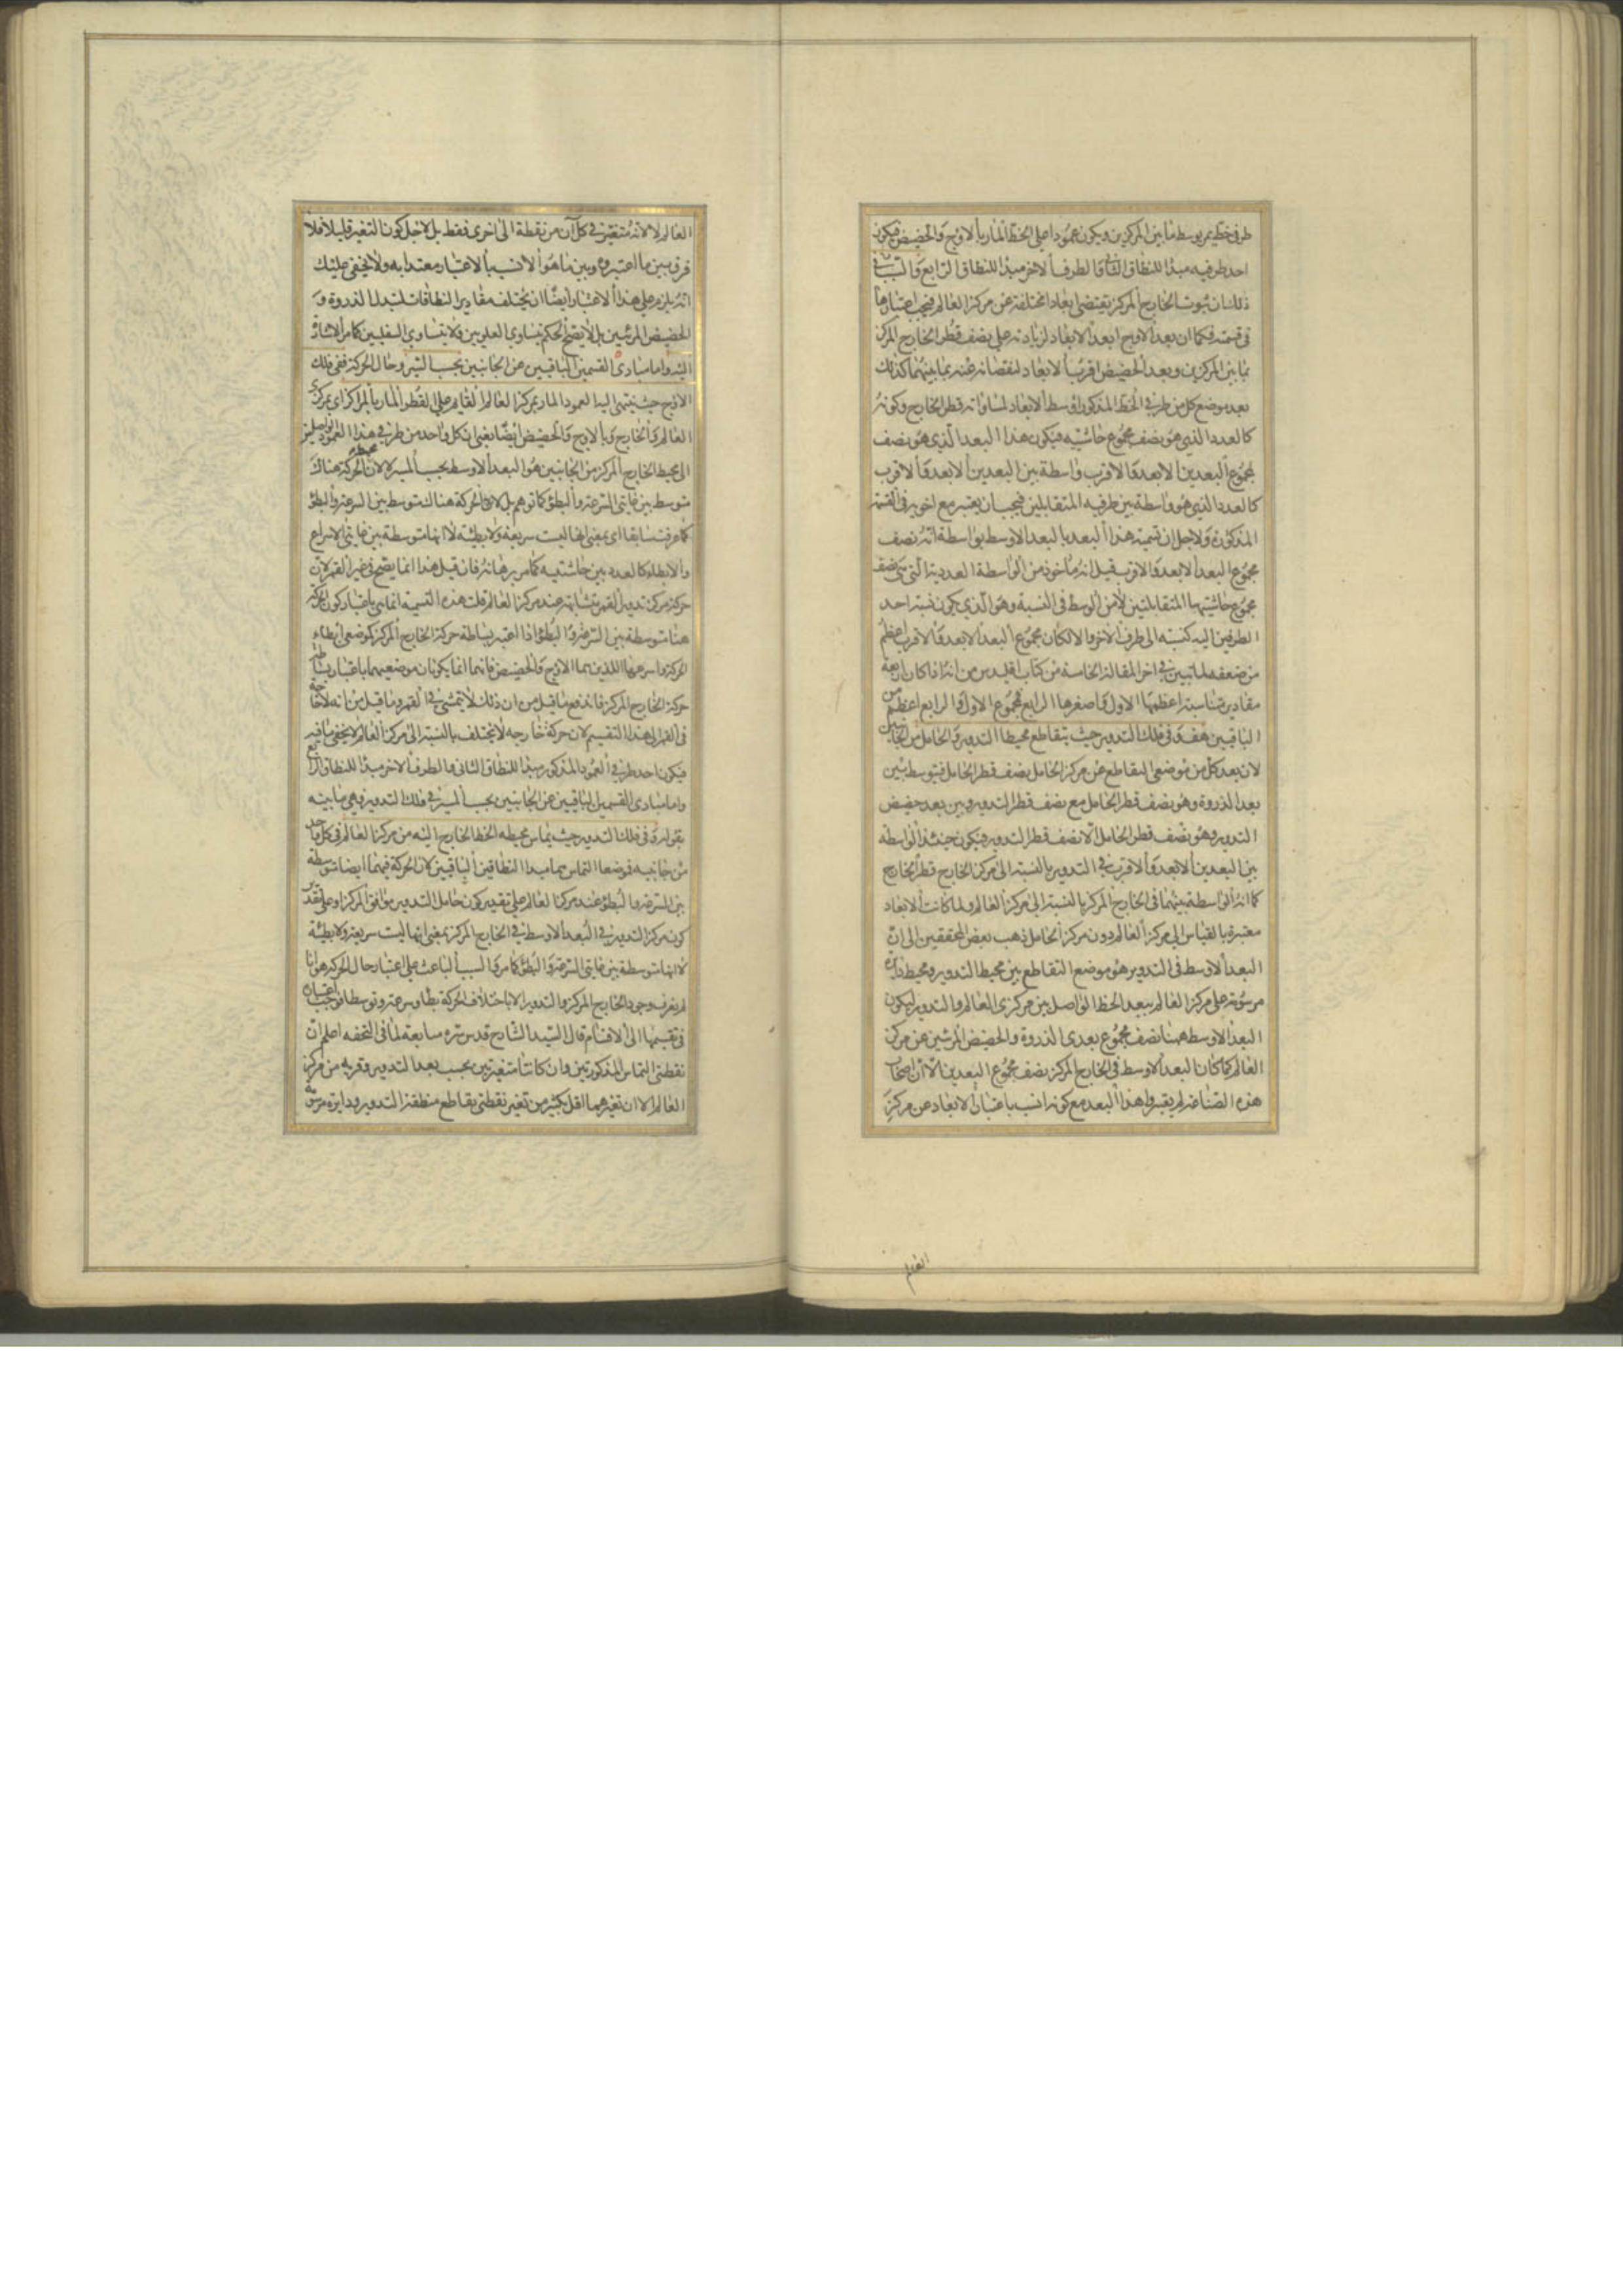 طرفى خط يمر بوسط ما بين المركزين ويكون عمودا على الخط المار بالاوج والحضيض فيكون
احد طرفيه مبدأ للنطاق الثانى والطرف الاخر مبدأ للنطاق الرابع والسبب فى
ذلك ان ثبوت الخارج المركز يقتضى ابعادا مختلفة عن مركز العالم فيجب اعتبارها
فى قسمته فكما ان بعد الاوج ابعد الابعاد لزيادته على نصف قطر الخارج المركز
بما بين المركزين وبعد الحضيض اقرب الابعاد لنقصانه عنه بما بينهما كذلك
بعد موضع كل من طرفى الخط المذكور اوسط الابعاد لمساواته نصف قطر الخارج وكونه
كالعدد الذى هو نصف مجموع حاشيتيه فيكون هذا البعد الذى هو نصف
مجموع البعدين الابعد والاقرب واسطة بين البعدين الابعد والاقرب
كالعدد الذى هو واسطة بين طرفيه المتقابلين فيجب ان يعتبر مع اخويه فى القسمة
المذكورة ولاجل ان تسمية هذا البعد بالبعد الاوسط بواسطة انه نصف
مجموع البعد الابعد والاقرب قيل انه مأخوذ من الواسطة العددية التى هى نصف
مجموع حاشيتيها المتقابلتين لا من الوسط فى النسبة وهو الذى يكون نسبة احد
الطرفين اليه كنسبته الى طرف الاخر والا لكان مجموع البعد الابعد والاقرب اعظم
من ضعفه لما تبين فى اخر المقالة الخامسة من كتاب اقليدس من انه اذا كان اربعة
مقادير متناسبة اعظمها الاول واصغرها الرابع فمجموع الاول والرابع اعظم من
الباقيين هف وفى فلك التدوير حيث يتقاطع محيطا التدوير والحامل من الجانبين
لان بعد كل من موضعى التقاطع عن مركز الحامل نصف قطر الحامل فيتوسط بين
بعد الذروة وهو نصف قطر الحامل مع نصف قطر التدوير وبين بعد حضيض
التدوير وهو نصف قطر الحامل الا نصف قطر التدوير فيكون حينئذ الواسطة
بين البعدين الابعد والاقرب فى التدوير بالنسبة الى مركز الخارج قطر الخارج
كما انه الواسطة بينهما فى الخارج المركز بالنسبة الى مركز العالم ولما كانت الابعاد
معتبرة بالقياس الى مركز العالم دون مركز الحامل ذهب بعض المحققين الى ان
البعد الاوسط فى التدوير هو موضع التقاطع بين محيط التدوير ومحيط دايرة
مرسومة على مركز العالم ببعد الخط الواصل بين مركزى العالم والتدوير ليكون
البعد الاوسط ههنا نصف مجموع بعدى الذروة والحضيض المرئيين عن مركز
العالم كما كان البعد الاوسط فى الخارج المركز نصف مجموع البعدين الا ان اصحاب
هذه الصناعة لم يعتبروا هذا البعد مع كونه انسب باعتبار الابعاد عن مركز
العالم
العالم لا لانه متغير فى كل آن من نقطة الى اخرى فقط بل لاجل كون التغير قليلا فلا
فرق بين ما اعتبروه وبين ما هو الانسب بالاعتبار معتدا به ولا يخفى عليك
انه يلزم على هذا الاعتبار ايضا ان يختلف مقادير النطاقات لتبدل الذروة و
الحضيض المرئيين بل لا يصح الحكم بتساوى العلويين ولا بتساوى السفليين كما مر الاشارة
اليه واما مبادى القسمين الباقيين عن الجانبين بحسب السير وحال الحركة ففى فلك
الاوج حيث ينتهى اليه العمود المار بمركز العالم القايم على القطر المار بالمراكز اى بمركزى
العالم والخارج وبالاوج والحضيض ايضا يعنى ان كل واحد من طرفى هذا العمود الواصلين
الى محيط الخارج المركز من الجانبين هو البعد الاوسط بحسب المسير لا لان الحركة هناك
متوسطة بين غايتى السرعة والبطؤ كما توهم بل لان الحركة هناك متوسط بين السرعة والبطؤ
كما عرفت سابقا اى بمعنى انها ليست سريعة ولا بطيئة لا انها متوسطة بين غايتى الاسراع
والابطاء كالعدد بين حاشيتيه كما مر برهانه فان قيل هذا انما يصح فى غير القمر لان
حركة مركز تدوير القمر متشابهة عند مركز العالم قلت هذه التسمية انما هى باعتبار كون الحركة
هنا متوسطة بين السرعة والبطؤ اذا اعتبر بساطة حركة الخارج المركز كموضعى ابطاء
الحركة واسرعها اللذين هما الاوج والحضيض فانهما انما يكونان موضعيهما باعتبار بساطة
حركة الخارج المركز فاندفع ما قيل من ان ذلك لا يتمشى فى القمر وما قيل من انه لا حاجة
فى القمر الى هذا التقسيم لان حركة خارجه لا يختلف بالنسبة الى مركز العالم لا يخفى ما فيه
فيكون احد طرفى العمود المذكور مبدأ للنطاق الثانى والطرف الاخر مبدأ للنطاق الرابع
واما مبادى القسمين الباقيين عن الجانبين بحسب المسير فى فلك التدوير فهى ما بينه
بقوله وفى فلك التدوير حيث يماس محيطه الخط الخارج اليه من مركز العالم فى كل واحد
من جانبيه فموضعا التماس هما مبدأ النطاقين الباقيين لان الحركة فيهما ايضا متوسطة
بين السرعة والبطؤ عند مركز العالم على تقدير كون حامل التدوير موافق المركز او على تقدير
كون مركز التدوير فى البعد الاوسط فى الخارج المركز بمعنى انها ليست سريعة ولا بطيئة
لا انها متوسطة بين غايتى السرعة والبطؤ كما مر والسبب الباعث على اعتبار حال الحركة هو انا
لم نعرف وجود الخارج المركز والتدوير الا باختلاف الحركة بطأ وسرعة وتوسطا فوجب اعتباره
فى تقسيمها الى الاقسام قال السيد الشارح قدس سره متابعة لما فى التحفه اعلم ان
نقطتى التماس المذكورتين وان كانتا متغيرتين بحسب بعد التدوير وقربه من مركز
العالم الا ان تغيرهما اقل بكثير من تغير نقطتى تقاطع منطقة التدوير ودايرة مرسومة